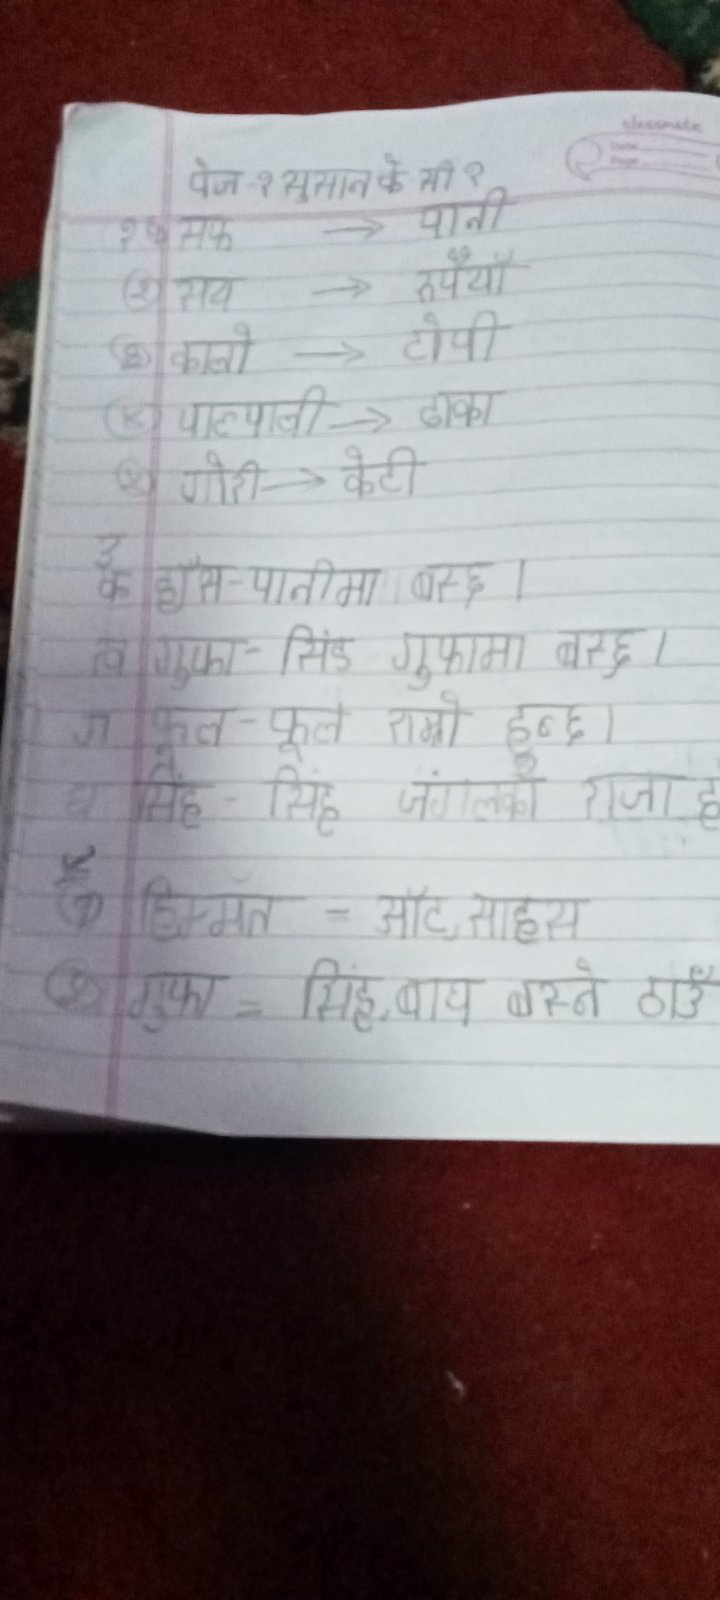 classmate
Date
Page
पेज-१ सुसान के सी १
१ सफ → पानी
(२) सय → रुपैयाँ
(३) कालो → टोपी
(४) पाल्पाली → ढाका
(५) गोरी → केटी
३
क हाँस-पानीमा बस्छ।
ख गुफा- सिंह गुफामा बस्छ।
ग फूल-फूल राम्रो हुन्छ।
घ सिंह - सिंह जंगलको राजा
हिम्मत = आँट, साहस
गुफा = सिंह, बाघ बस्ने ठाउँ